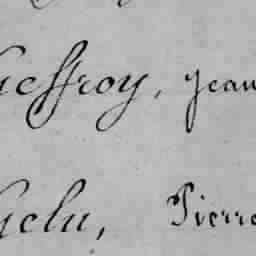 Geffroy, Jean
Gelu, Pierre